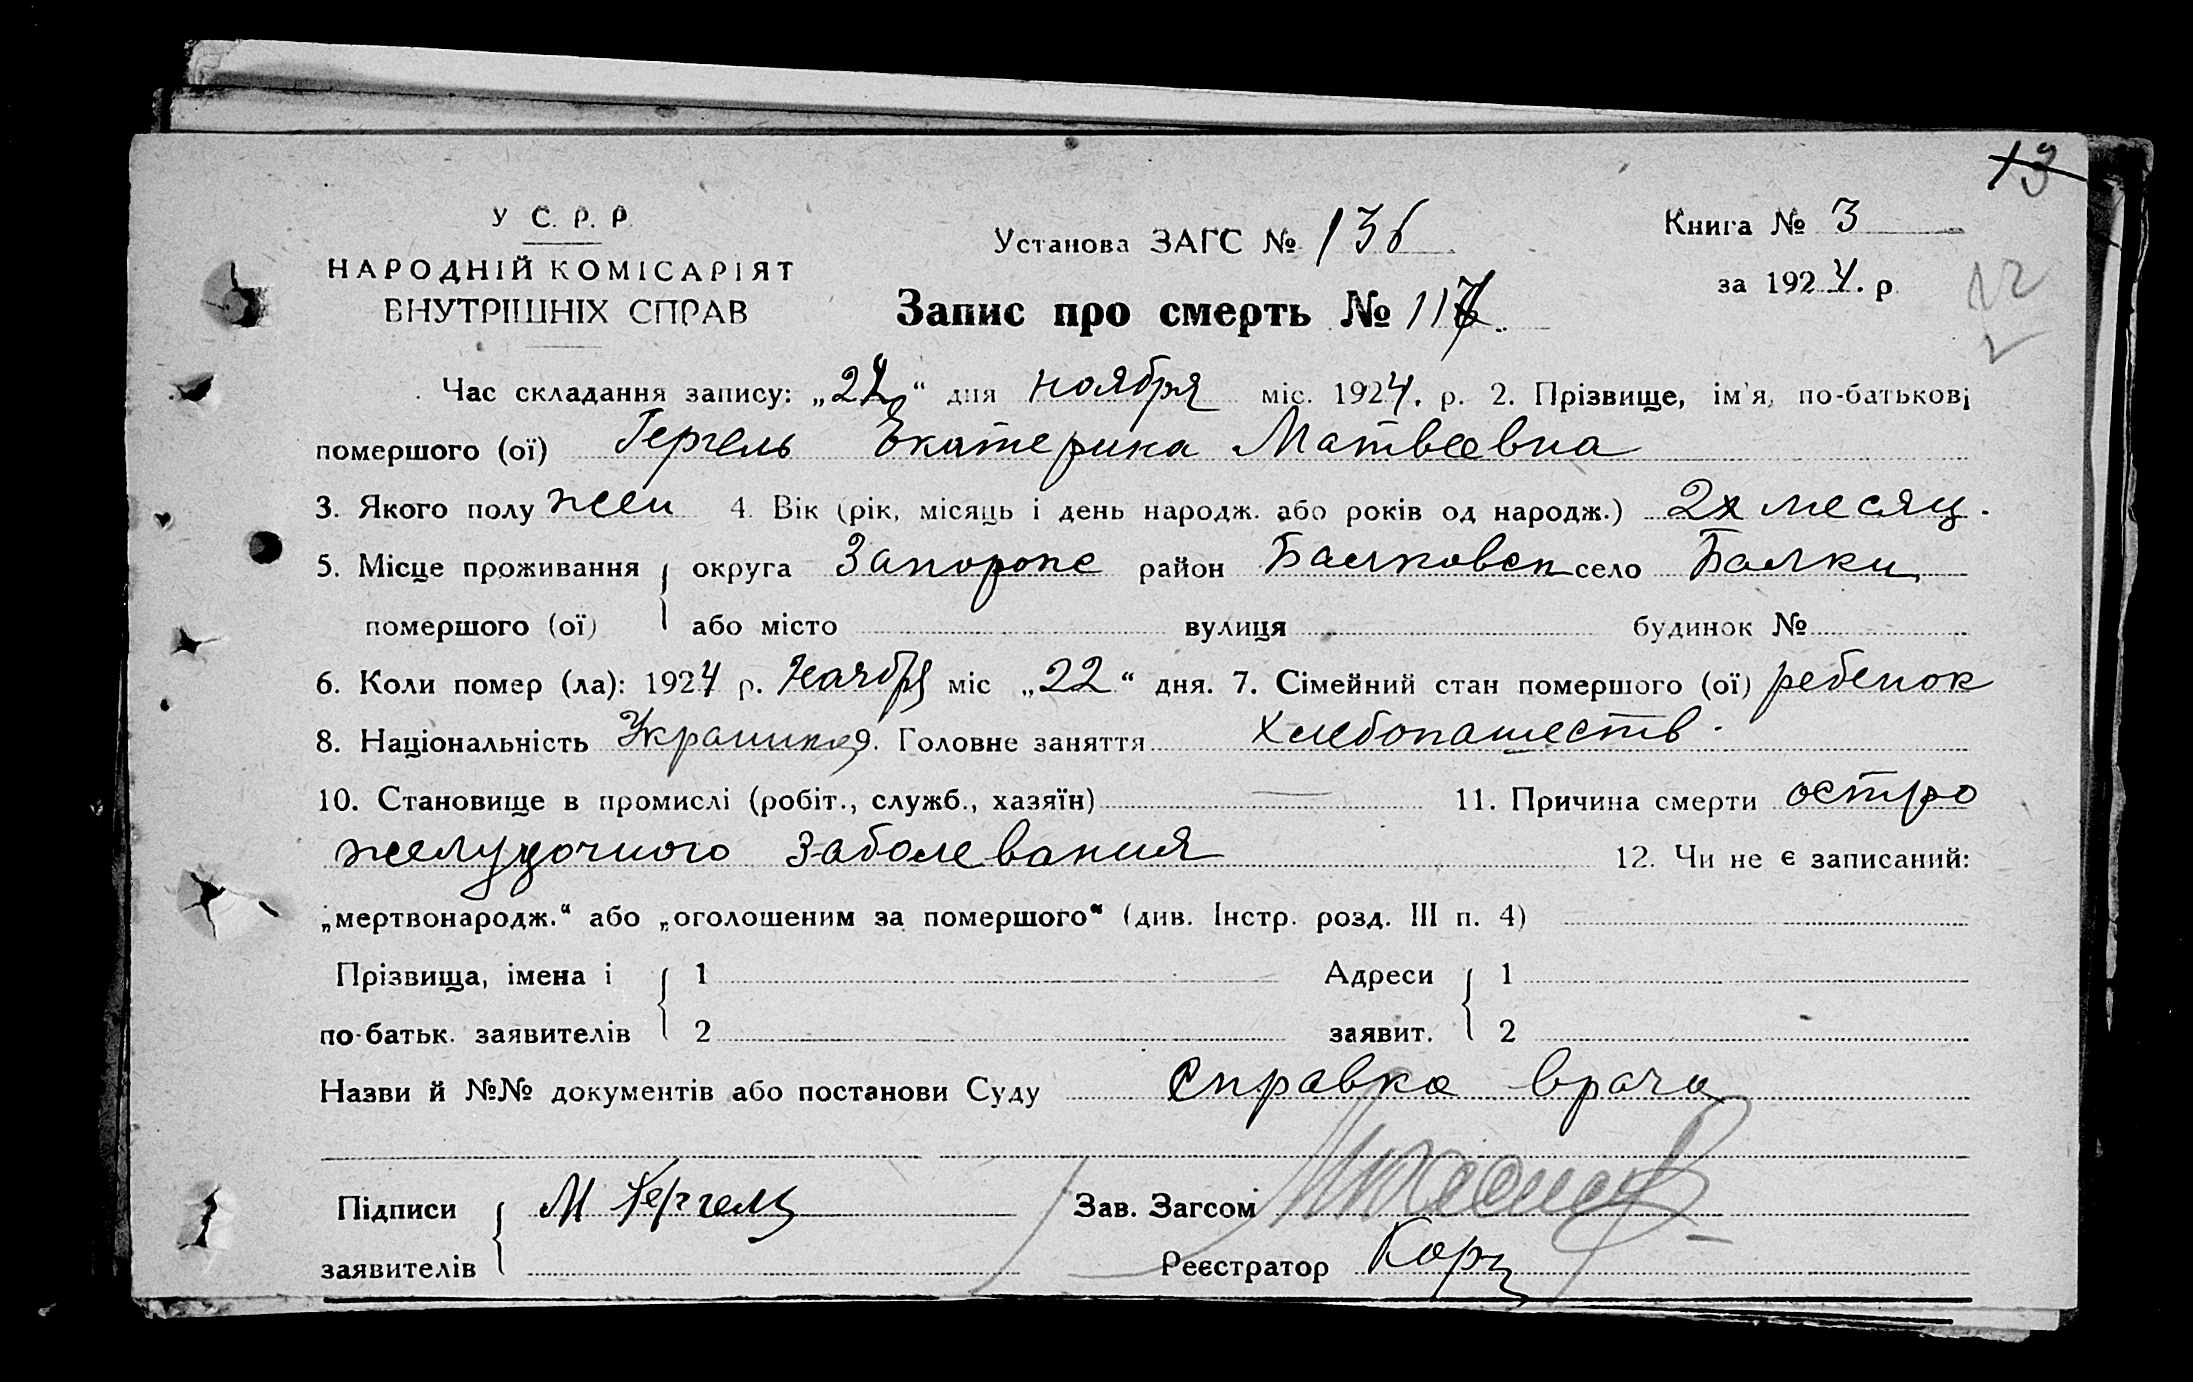 13
У С. Р. Р.
НАРОДНІЙ КОМІСАРІЯТ
ВНУТРІШНІХ СПРАВ
Установа ЗАГС № 136
Книга № 3
за 1924. р.
Запис про смерть № 117
12
Час складання запису: „22“ дня ноября міс. 1924. р. 2. Прізвище, ім'я, по-батькові
помершого (ої) Гергель Екатерина Матвеевна
3. Якого полу жен 4. Вік (рік, місяць і день народж. або років од народж.) 2х месяц.
5. Місце проживання округа Запорожс район Балковск село Балки
помершого (ої) або місто вулиця будинок №
6. Коли помер (ла): 1924 р. Ноября міс „22“ дня. 7. Сімейний стан помершого (ої) ребенок
8. Національність Украинка 9. Головне заняття хлебопашеств.
10. Становище в промислі (робіт., служб., хазяїн) — 11. Причина смерти остро
желудочного заболевания 12. Чи не є записаний:
„мертвонародж.“ або „оголошеним за помершого“ (див. Інстр. розд. III п. 4)
Прізвища, імена і 1 Адреси 1
по-батьк. заявителів 2 заявит. 2
Назви й №№ документів або постанови Суду Справка врача
Підписи М Гергель Зав. Загсом
заявителів Реєстратор Корц